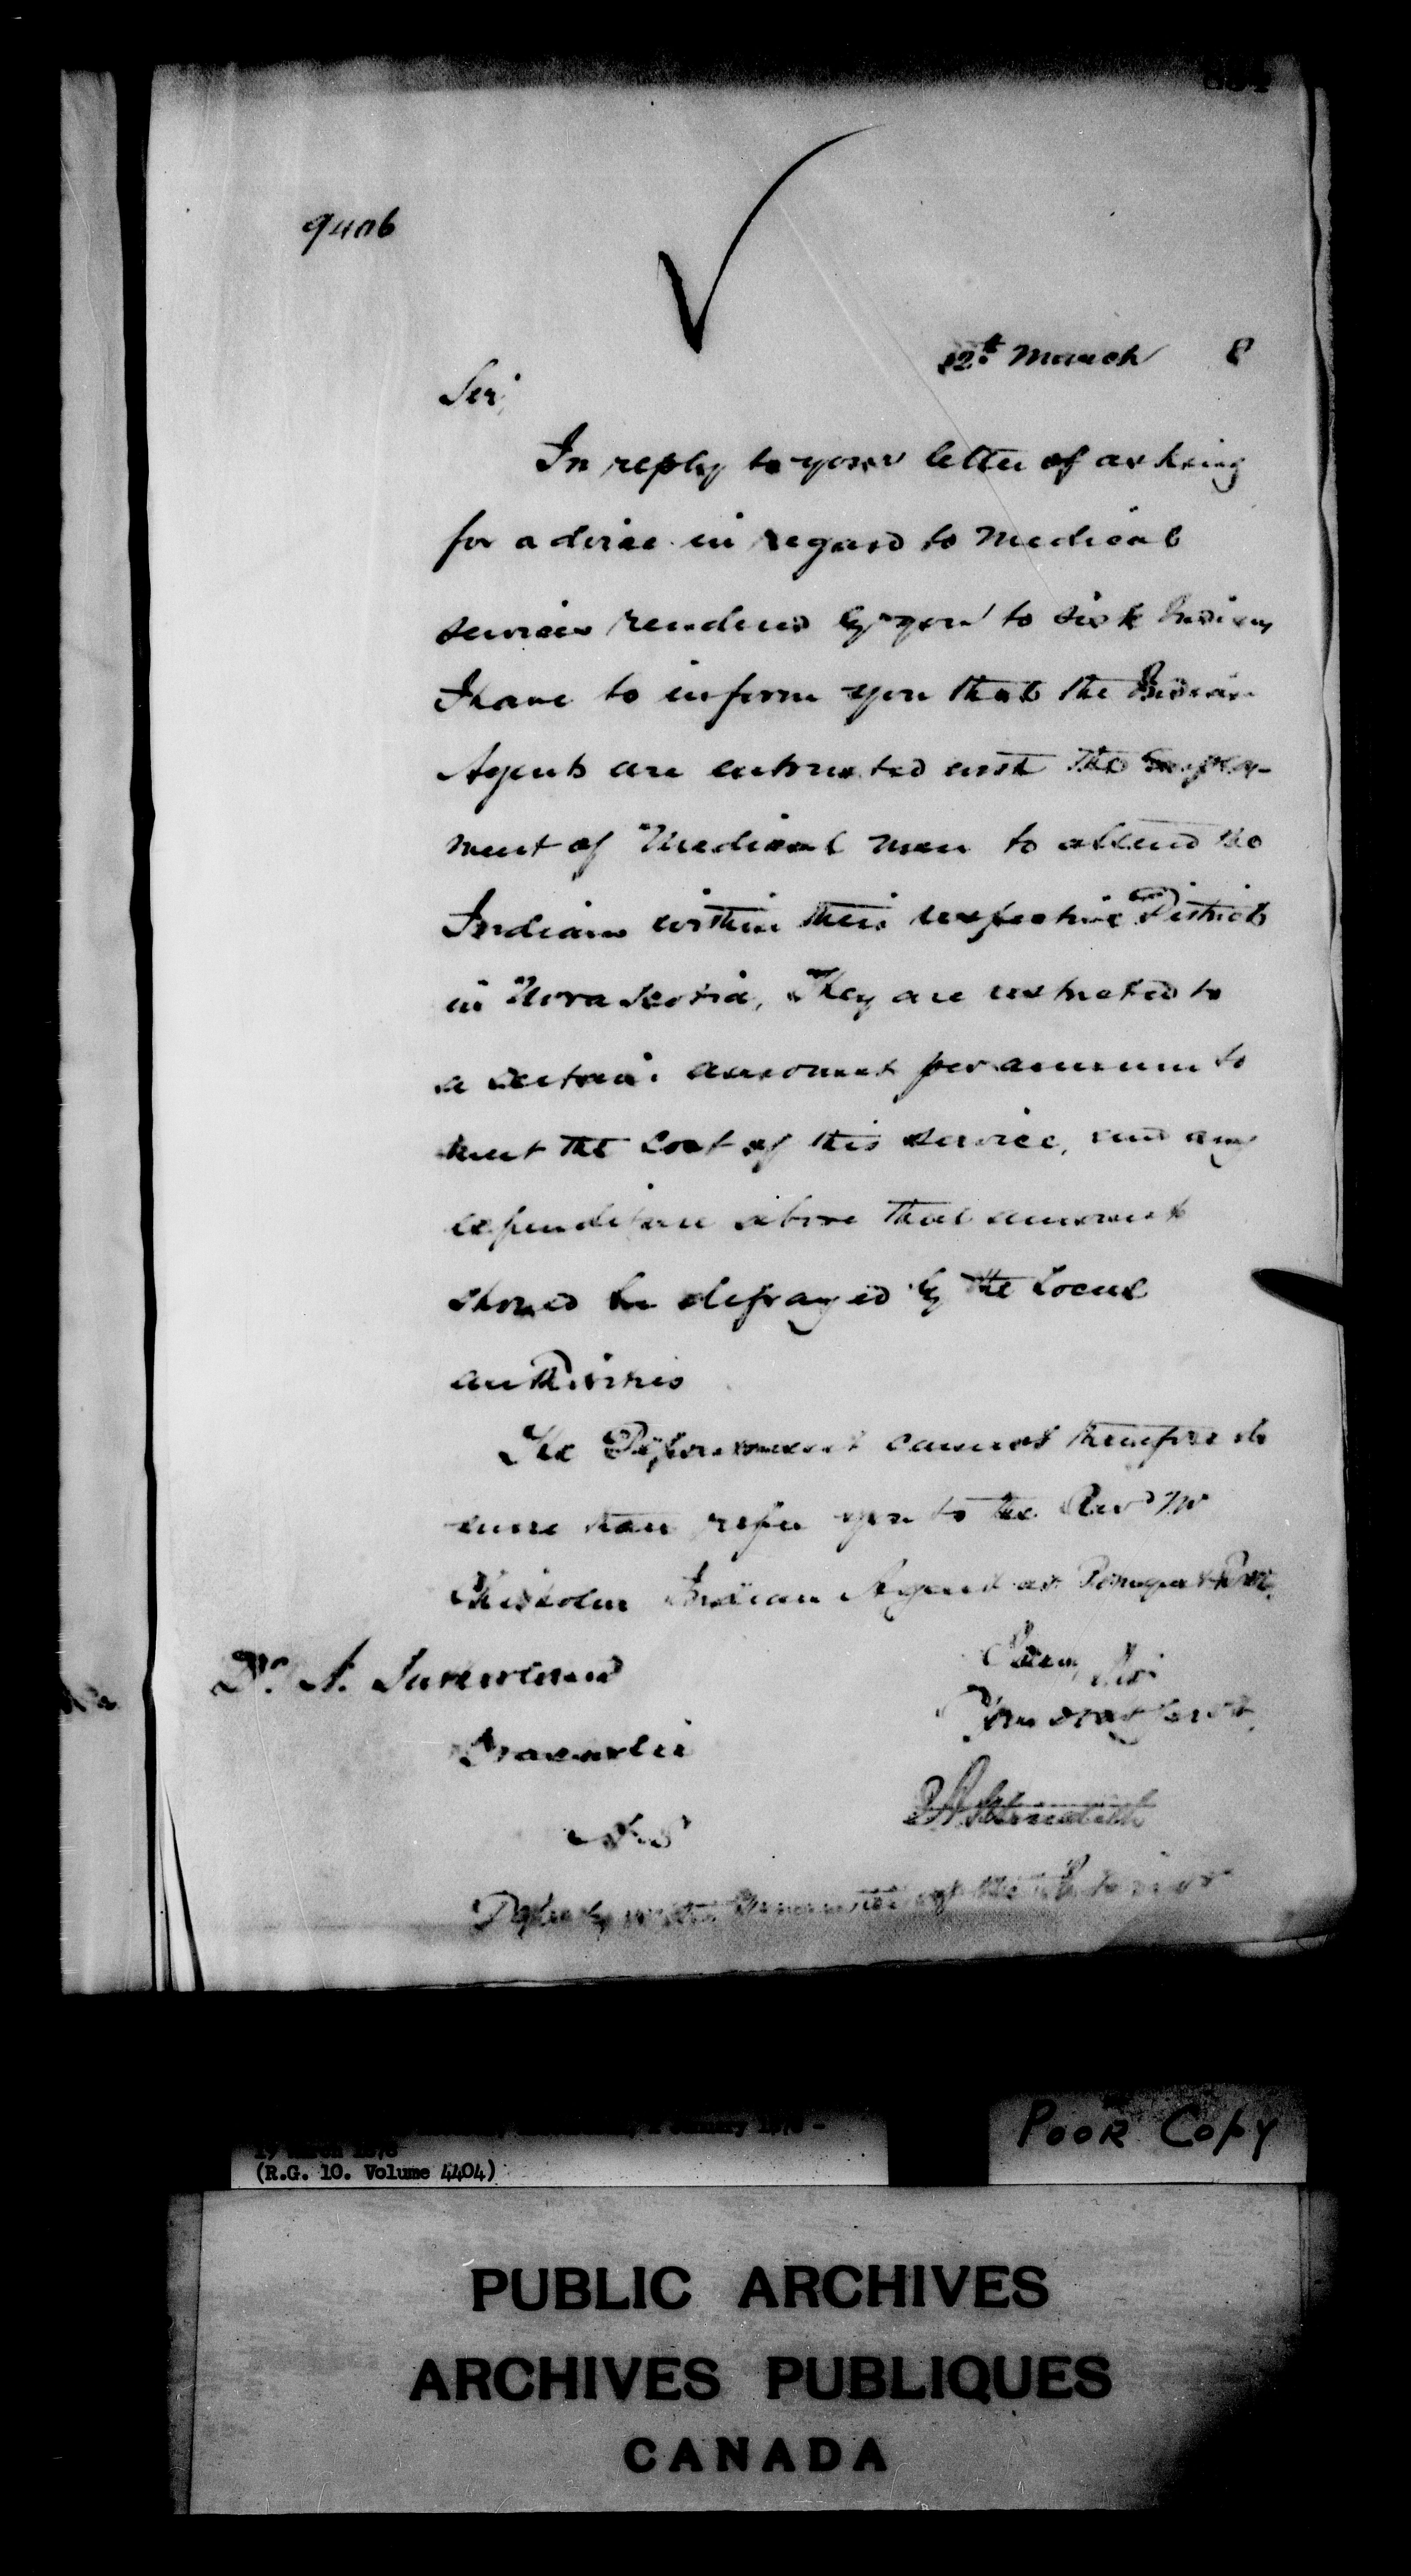 9406
12th March 8
Sir,
In reply to your letter of asking
for advice in regard to Medical
services rendered by you to sick Indians
I have to inform you that the Indian
Agents are entrusted with the employ-
ment of Medical men to attend the
Indians within their respective Districts
in Nova Scotia, They are restricted to
a certain amount per annum to
meet the cost of this service, and any
expenditure above that amount
should be defrayed by the Local
authorities
The Department cannot therefore do
more than refer you to the Revd Mr
Chisholm Indian Agent at
Dr. A.
I am, Sir
Your obedt Servt
N.S
Deputy of the Minister of the Interior
(R.G. 10. Volume 4404)
POOR COPY
PUBLIC ARCHIVES
ARCHIVES PUBLIQUES
CANADA